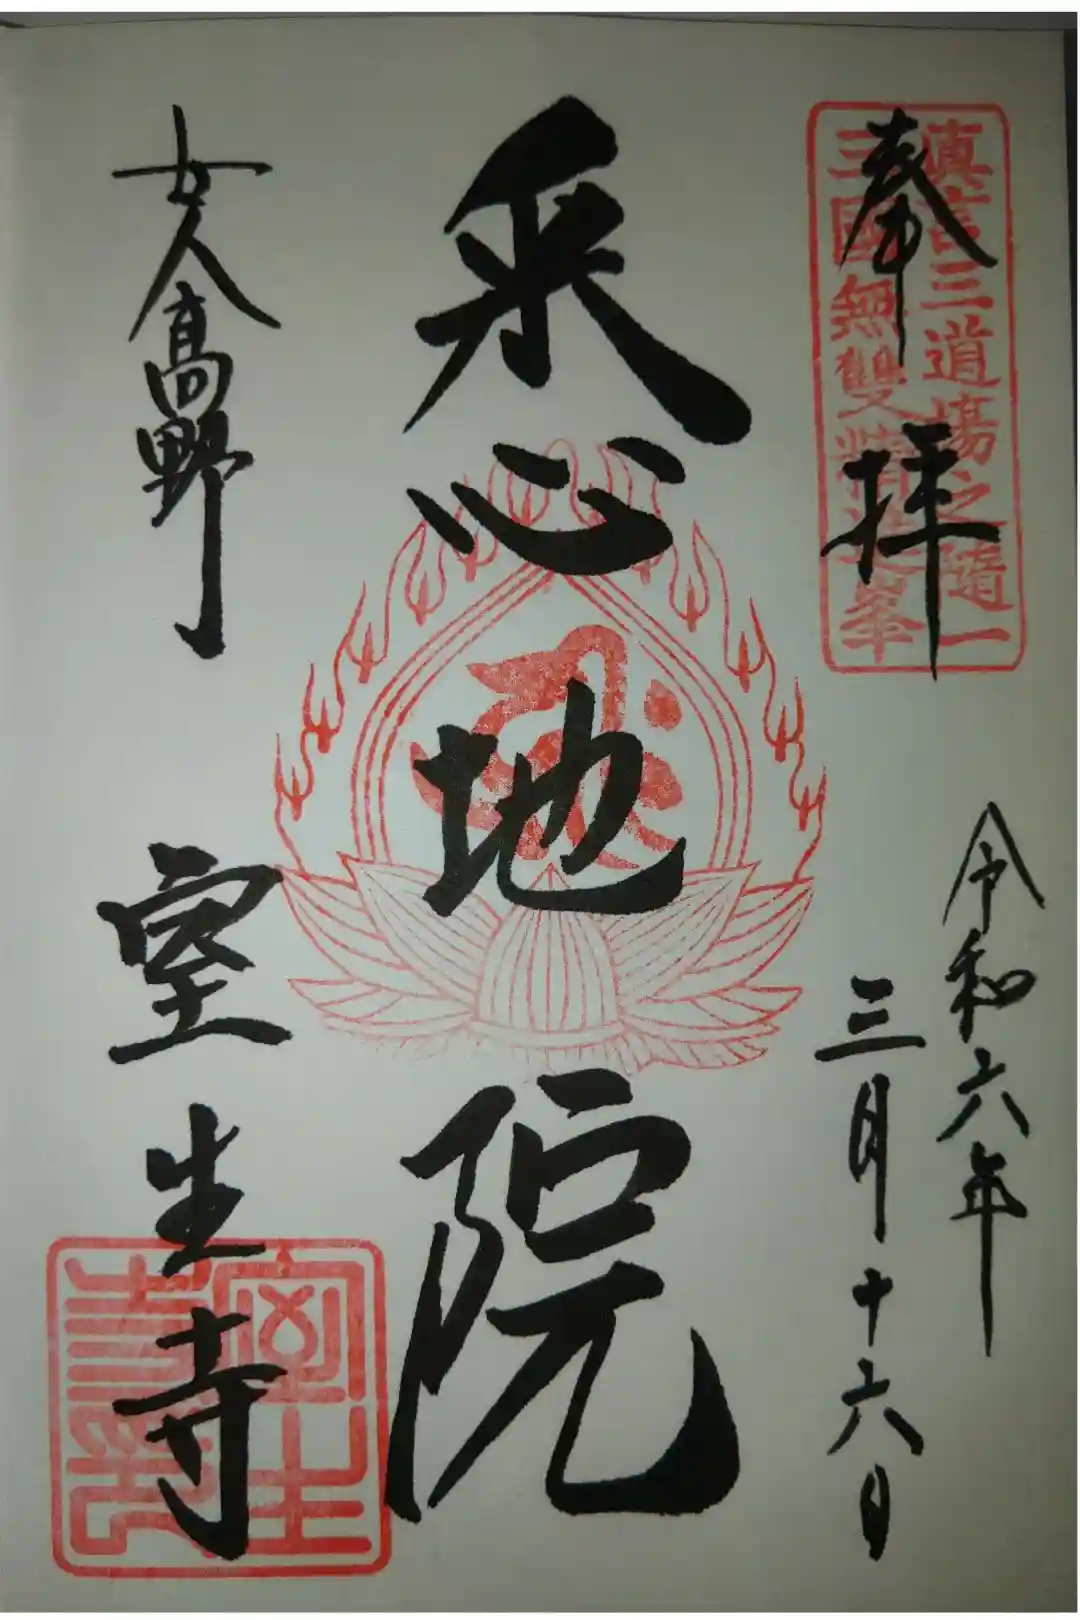 奉拝
眞言三道場之随一
三國無雙精進峯
令和六年
三月十六日
悉地院
女人高野
室生寺
室生
寺印